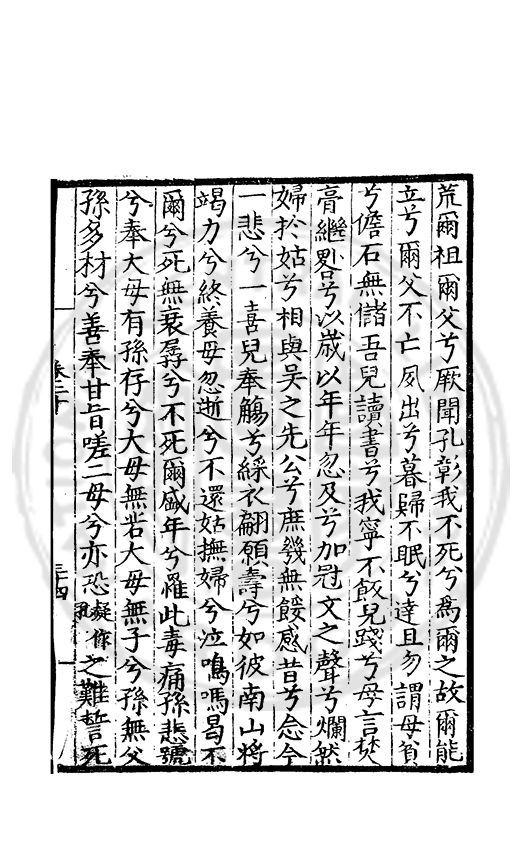 荒爾祖爾父兮厥聞孔彰我不死兮為爾之故爾能
立兮爾父不亡夙出兮暮歸不眠兮達旦勿謂母貧
兮儋石無儲吾兒讀書兮我寧不飯兒踐兮母言焚
膏繼晷兮以歲以年年忽及兮加冠文之聲兮爛然
婦扵姑兮相與吴之先公兮庶幾無餒感昔兮念今
一悲兮一喜兒奉觴兮綵衣翩願壽兮如彼南山將
竭力兮終養母忽逝兮不還姑撫婦兮泣鳴嗎曷不
爾兮死無衰孱兮不死爾盛年兮罹此毒痛孫悲號
兮奉大母有孫存兮大母無若大母無子兮孫無父
孫多材兮善奉甘旨嗟二母兮亦恐孔疑作之難誓死
卷二十
三十四